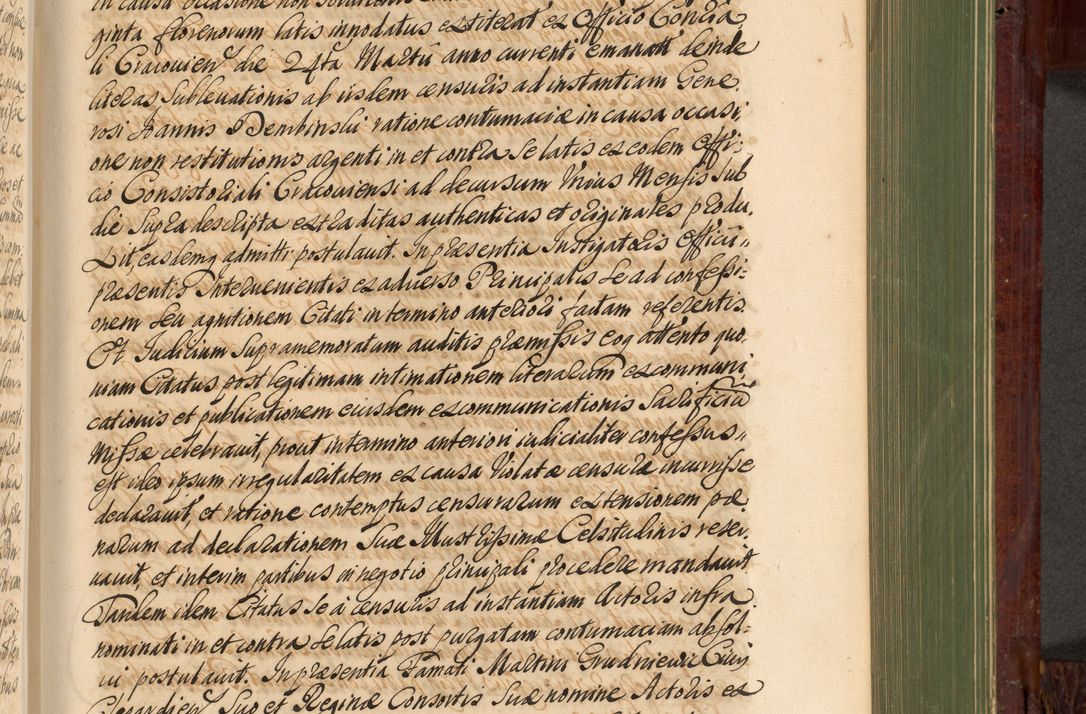 in causa occasione non solutionis
ginta florenorum latis innodatus extiterat ex Officio Consisto
li Cracovien die 24ta Martii anno currenti emanatt deinde
literas Sublevationis ab iisdem censuris ad instantiam Gene
rosi Joannis Dembinskii ratione contumaciæ in causa occasi,
one non restitutionis argenti in et contra se latis ex eodem Offi:
cio Consistoriali Cracoviensi ad decursum Unius Mensis Sub
die Supra descripta extraditas authenticas et originales produ,
xit, easdemq admitti postulavit. In præsentia Instigatoris Officii,,
præsentis Intervenientis ex adverso Principalis se ad confessi:
onem seu agnitionem Citati in termino anteriori factam referentis.
Et Judicium Supramemoratum auditis præmissis eoq attento quo,
niam Citatus post legitimam intimationem literarum excommuni
cationis et publicationem eiusdem excommunicationis Sacrificiū
Missæ celebravit, prout in termino anteriori iudicialiter confessus,,
est ideo ipsum irregularitatem ex causa Violatæ censuræ incurrisse
declaravit, et ratione contemptus censurarum extensionem pæ
narum ad declarationem Suæ Illustrissimæ Celsitudinis reser,
vavit, et interim partibus in negotio principali procedere mandavit
Tandem idem Citatus se a censuris ad instantiam Actoris infra
nominati in et contra se latis post purgatam contumaciam absol:
vi postulavit. In præsentia Famati Martini Grudniewic Civis
Suo et Reginæ Consortis Suæ nomine Actoris ex